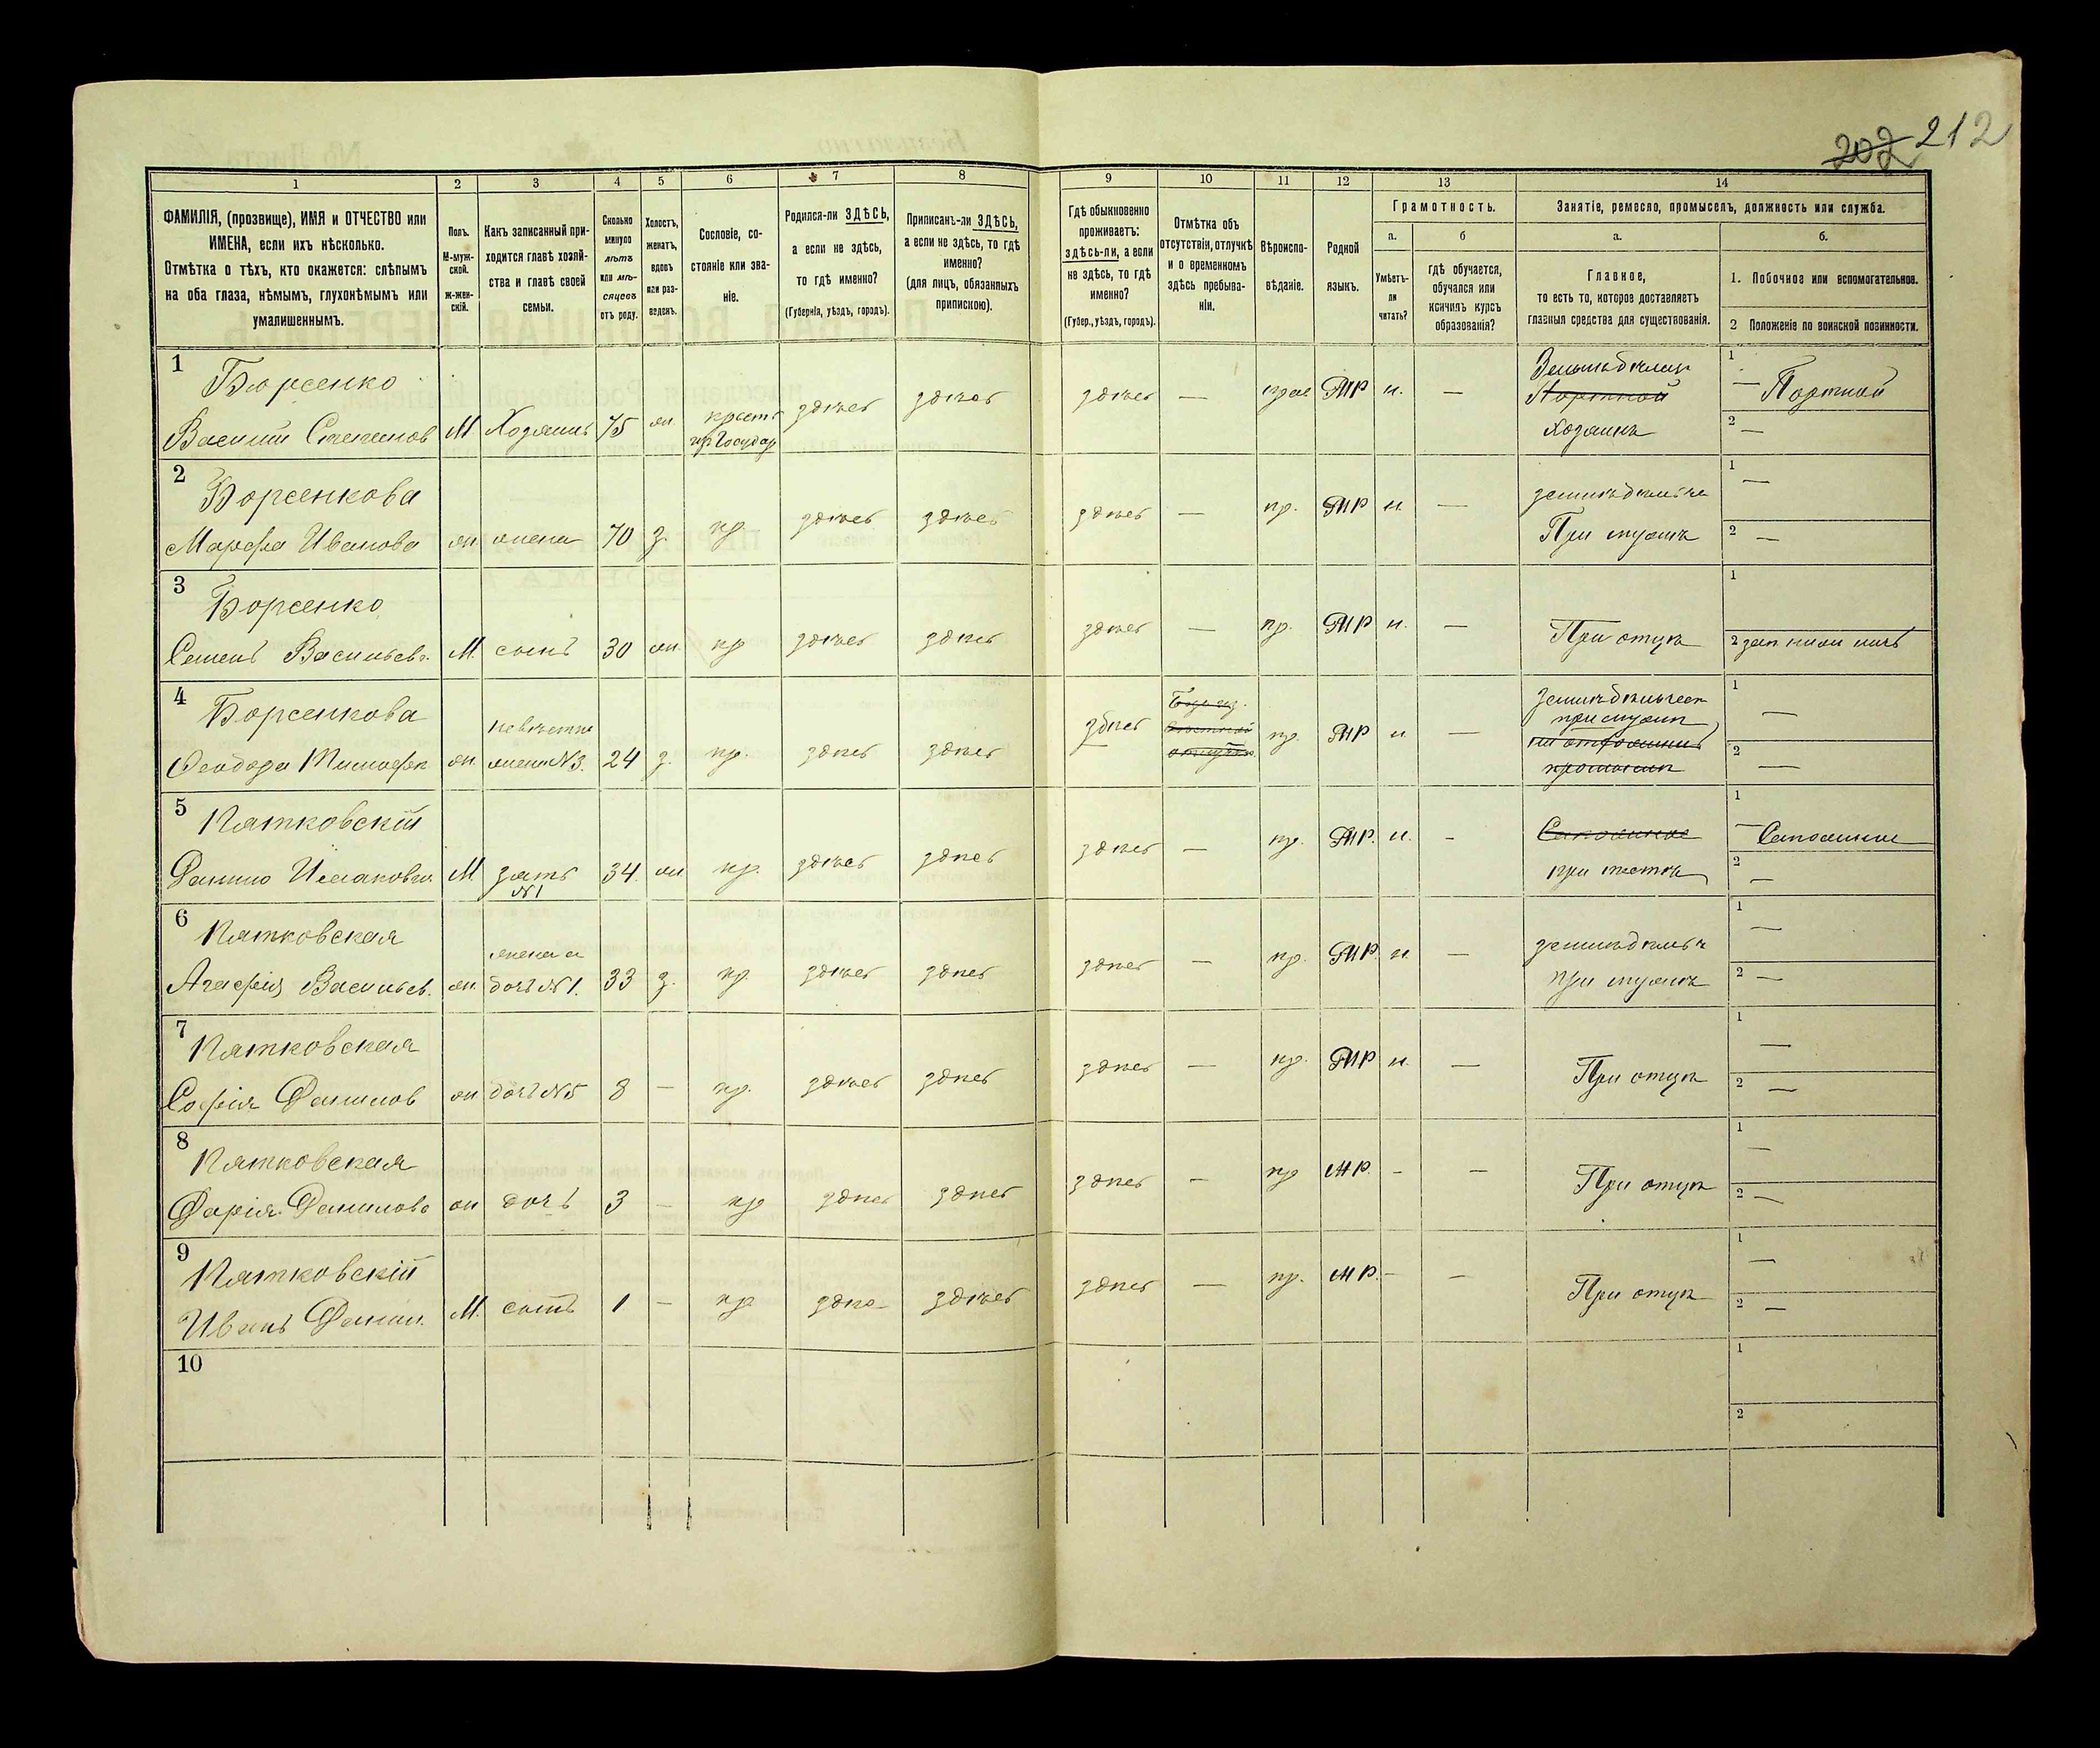 202 212
1 2 3 4 5 6 7 8 9 10 11 12 13 14
ФАМИЛІЯ, (прозвище), ИМЯ и ОТЧЕСТВО или
ИМЕНА, если ихъ нѣсколько.
Отмѣтка о тѣхъ, кто окажется: слѣпымъ
на оба глаза, нѣмымъ, глухонѣмымъ или
умалишеннымъ.
Полъ.
М-муж-
ской.
ж-жен-
скій.
Какъ записанный при-
ходится главѣ хозяй-
ства и главѣ своей
семьи.
Сколько
минуло
лѣтъ
или мѣ-
сяцевъ
отъ роду.
Холостъ,
женатъ,
вдовъ
или раз-
веденъ.
Сословіе, со-
стояніе или зва-
ніе.
Родился-ли ЗДѢСЬ,
а если не здѣсь,
то гдѣ именно?
(Губернія, уѣздъ, городъ).
Приписанъ-ли ЗДѢСЬ,
а если не здѣсь, то гдѣ
именно?
(для лицъ, обязанныхъ
припискою).
Гдѣ обыкновенно
проживаетъ:
здѣсь-ли, а если
не здѣсь, то гдѣ
именно?
(Губер., уѣздъ, городъ).
Отмѣтка объ
отсутствіи, отлучкѣ
и о временномъ
здѣсь пребыва-
ніи.
Вѣроиспо-
вѣданіе.
Родной
языкъ.
Грамотность.
а.
Умѣетъ-
ли
читать?
б
гдѣ обучается,
обучался или
кончилъ курсъ
образованія?
Занятіе, ремесло, промыселъ, должность или служба.
а.
Главное,
то есть то, которое доставляетъ
главныя средства для существованія.
б.
1. Побочное или вспомогательное.
2 Положеніе по воинской повинности.
1
Борсенко
Василій Степановъ М Хозяинъ 75 жн. крест. здѣсь здѣсь здѣсь — прав М.Р. н. —
Портной
хозяинъ
1 — Портной
2 —
2
Борсенкова
Марфа Иванова жн жена 70 з. кр. здѣсь здѣсь здѣсь — пр. М.Р н —
При мужѣ
1 —
2 —
3
Борсенко
Семенъ Васильев. М. сынъ 30 жн. кр здѣсь здѣсь здѣсь — пр. М.Р н. —
При отцѣ
1
2
4
Борсенкова
невѣстка
Феодора Тимофѣ. жн. жена №3. 24 з. кр. здѣсь здѣсь здѣсь пр. М.Р н —
при мужѣ
1 —
2 —
5
Пятковскій
Данило Исаковъ М зять 34 жн кр. здѣсь здѣсь здѣсь — пр. М.Р. н. -
№1
при тестѣ
1 —
2 —
6
Пятковская
жена и
Агафія Васильев. жн. дочь №1. 33 з. кр здѣсь здѣсь здѣсь — пр. М.Р н. —
при мужѣ
1 —
2 —
7
Пятковская
Софія Данилов жн дочь №5 8 — кр. здѣсь здѣсь здѣсь — пр. М.Р н. —
При отцѣ
1 —
2 —
8
Пятковская
Дарія Данилова жн дочь 3 — кр здѣсь здѣсь здѣсь - пр М.Р. - —
При отцѣ
1 —
2 —
9
Пятковскій
Иванъ Данил. М. сынъ 1 — кр здѣсь здѣсь здѣсь — пр. М.Р. - —
При отцѣ
1 —
2 —
10
1
2